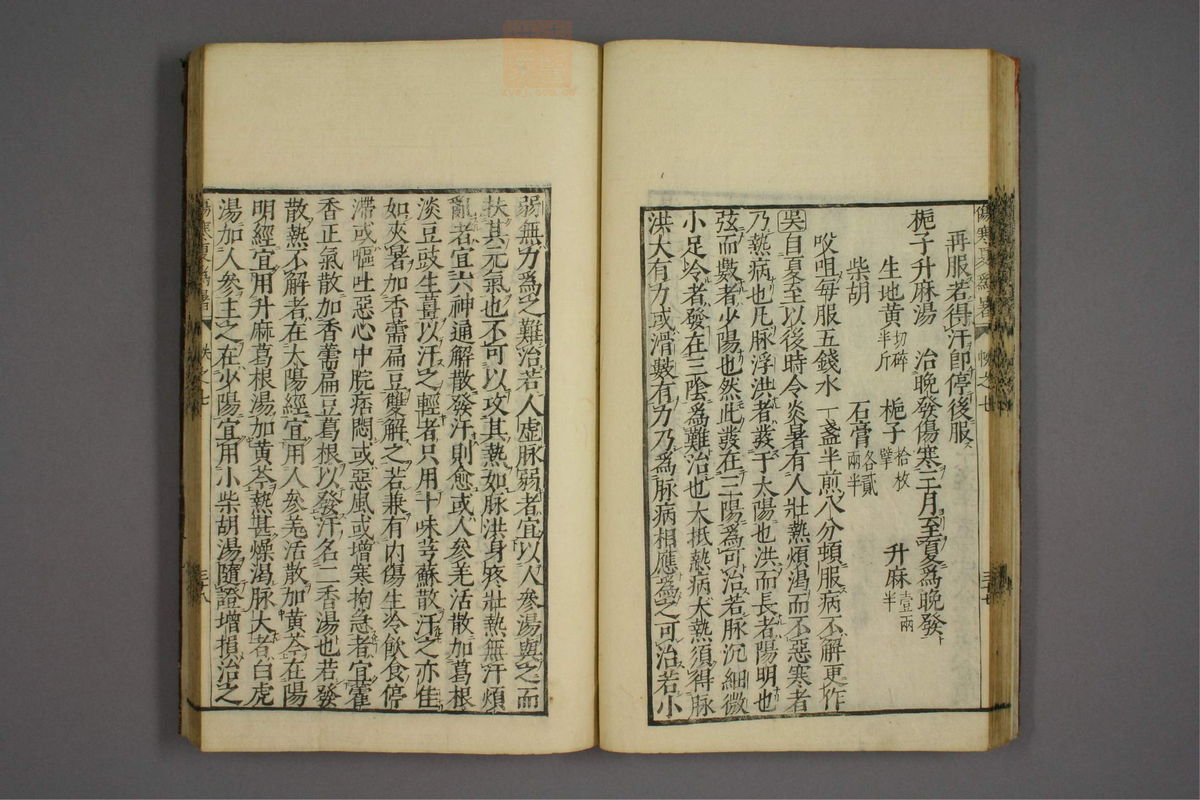 再服若得汗卽停後服
梔子升麻湯　治晩發傷寒三月至夏爲晩發
生地黃切碎半斤　梔子拾枚擘　升麻壹兩半
柴胡　石膏各貳兩半
㕮咀每服五錢水一盞半煎八分頓服病不解更作
吴自夏至以後時令炎暑有人壯熱煩渴而不惡寒者
乃熱病也凡脉浮洪者發于太陽也洪而長者陽明也
弦而數者少陽也然此發在三陽爲可治若脉沉細微
小足冷者發在三陰爲難治也大抵熱病大熱須得脉
洪大有力或滑數有力乃爲脉病相應爲之可治若小
弱無力爲之難治若人虛脉弱者宜以人參湯與之而
扶其元氣也不可以攻其熱如脉洪身疼壯熱無汗煩
亂者宜六神通解散發汗則愈或人參羌活散加葛根
淡豆豉生薑以汗之輕者只用十味芎蘇散汗之亦佳
如夾暑加香薷扁豆雙解之若兼有内傷生冷飮食停
滯或嘔吐惡心中脘痞悶或惡風或增寒拘急者宜藿
香正氣散加香薷扁豆葛根以發汗名二香湯也若發
散熱不解者在太陽經宜用人參羌活散加黃芩在陽
明經宜用升麻葛根湯加黃芩熱甚燥渴脉大者白虎
湯加人參主之在少陽宜用小柴胡湯隨證增損治之